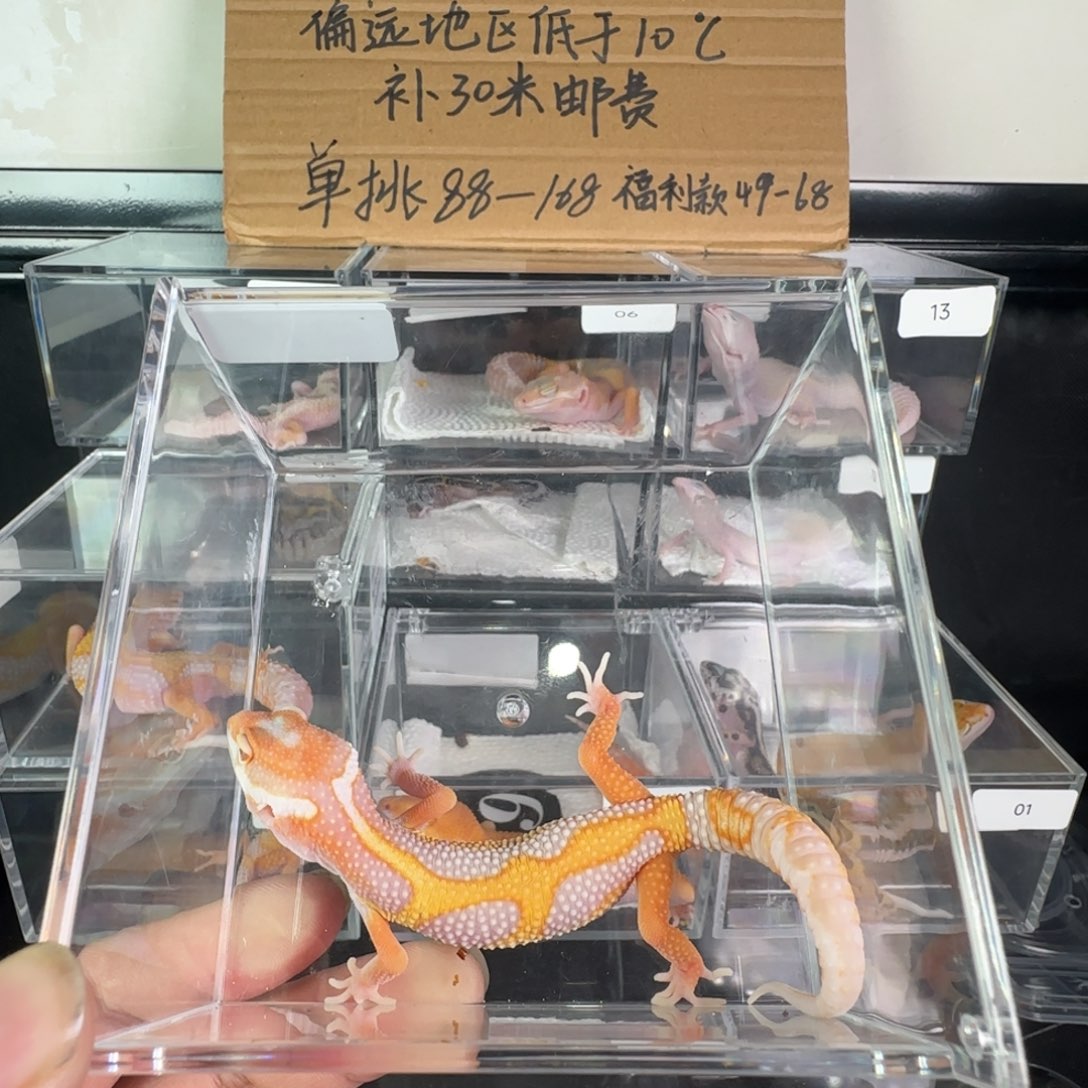 偏远地区低于10℃
补30米邮费
单挑88-168 福利款49-68
06
13
01
9